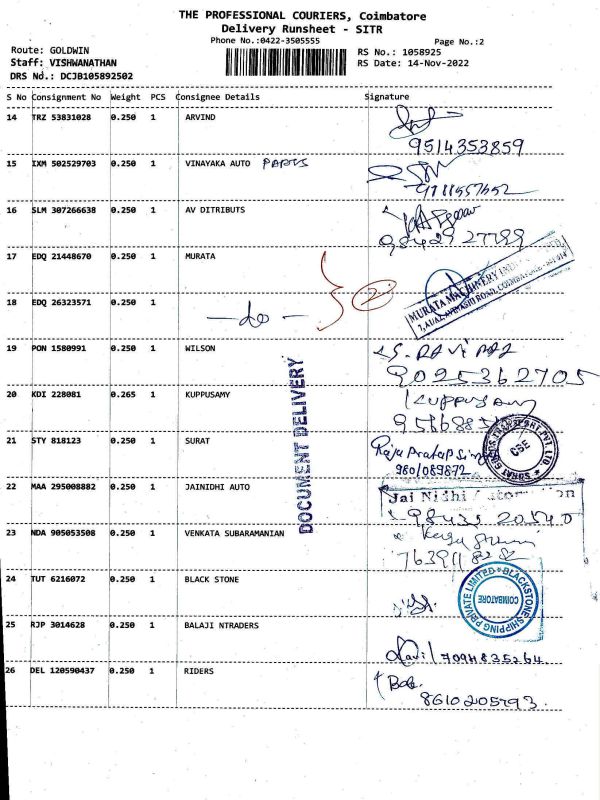 THE PROFESSIONAL COURIERS, Coimbatore
Delivery Runsheet - SITR
Phone No.:0422-3505555
Page No.:2
Route: GOLDWIN
RS No.: 1058925
Staff: VISHWANATHAN
RS Date: 14-Nov-2022
DRS No.: DCJB105892502
S No Consignment No Weight PCS Consignee Details Signature
14 TRZ 53831028 0.250 1 ARVIND
9514353859
15 IXM 502529703 0.250 1 VINAYAKA AUTO PARTS
16 SLM 307266638 0.250 1 AV DITRIBUTS
98429 27789
17 EDQ 21448670 0.250 1 MURATA
MURATA MACHINERY
18 EDQ 26323571 0.250 1 -do- 2
19 PON 1580991 0.250 1 WILSON
9025362705
20 KDI 228081 0.265 1 KUPPUSAMY
Kuppusamy
21 STY 818123 0.250 1 SURAT
Raju Pratap Sing
DOCUMENT DELIVERY
22 MAA 295008882 0.250 1 JAINIDHI AUTO
Jai Nidhi
23 NDA 905053508 0.250 1 VENKATA SUBARAMANIAN
24 TUT 6216072 0.250 1 BLACK STONE
BLACKSTONE SHIPPING PRIVATE LIMITED
COIMBATORE
25 RJP 3014628 0.250 1 BALAJI NTRADERS
7094835264
26 DEL 120590437 0.250 1 RIDERS
8610205793